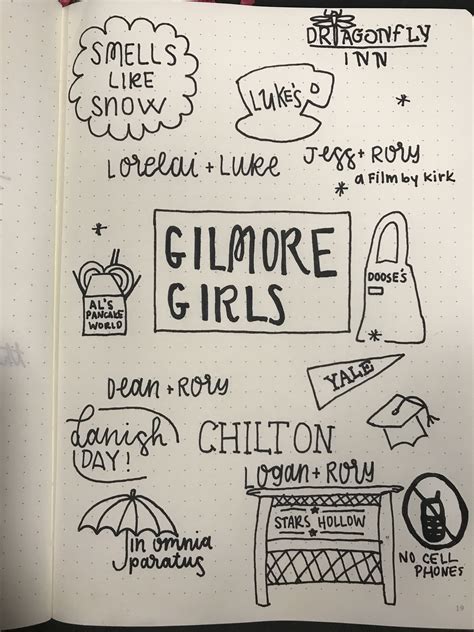 SMELLS
LIKE
SNOW
DRAGONFLY
INN
LUKE'S
Lorelai + Luke
Jess + Rory
a Film by Kirk
GILMORE
GIRLS
AL'S
PANCAKE
WORLD
DOOSE'S
YALE
Dean + Rory
Danish
DAY!
CHILTON
Logan + Rory
in omnia
paratus
STARS HOLLOW
NO CELL
PHONES
19